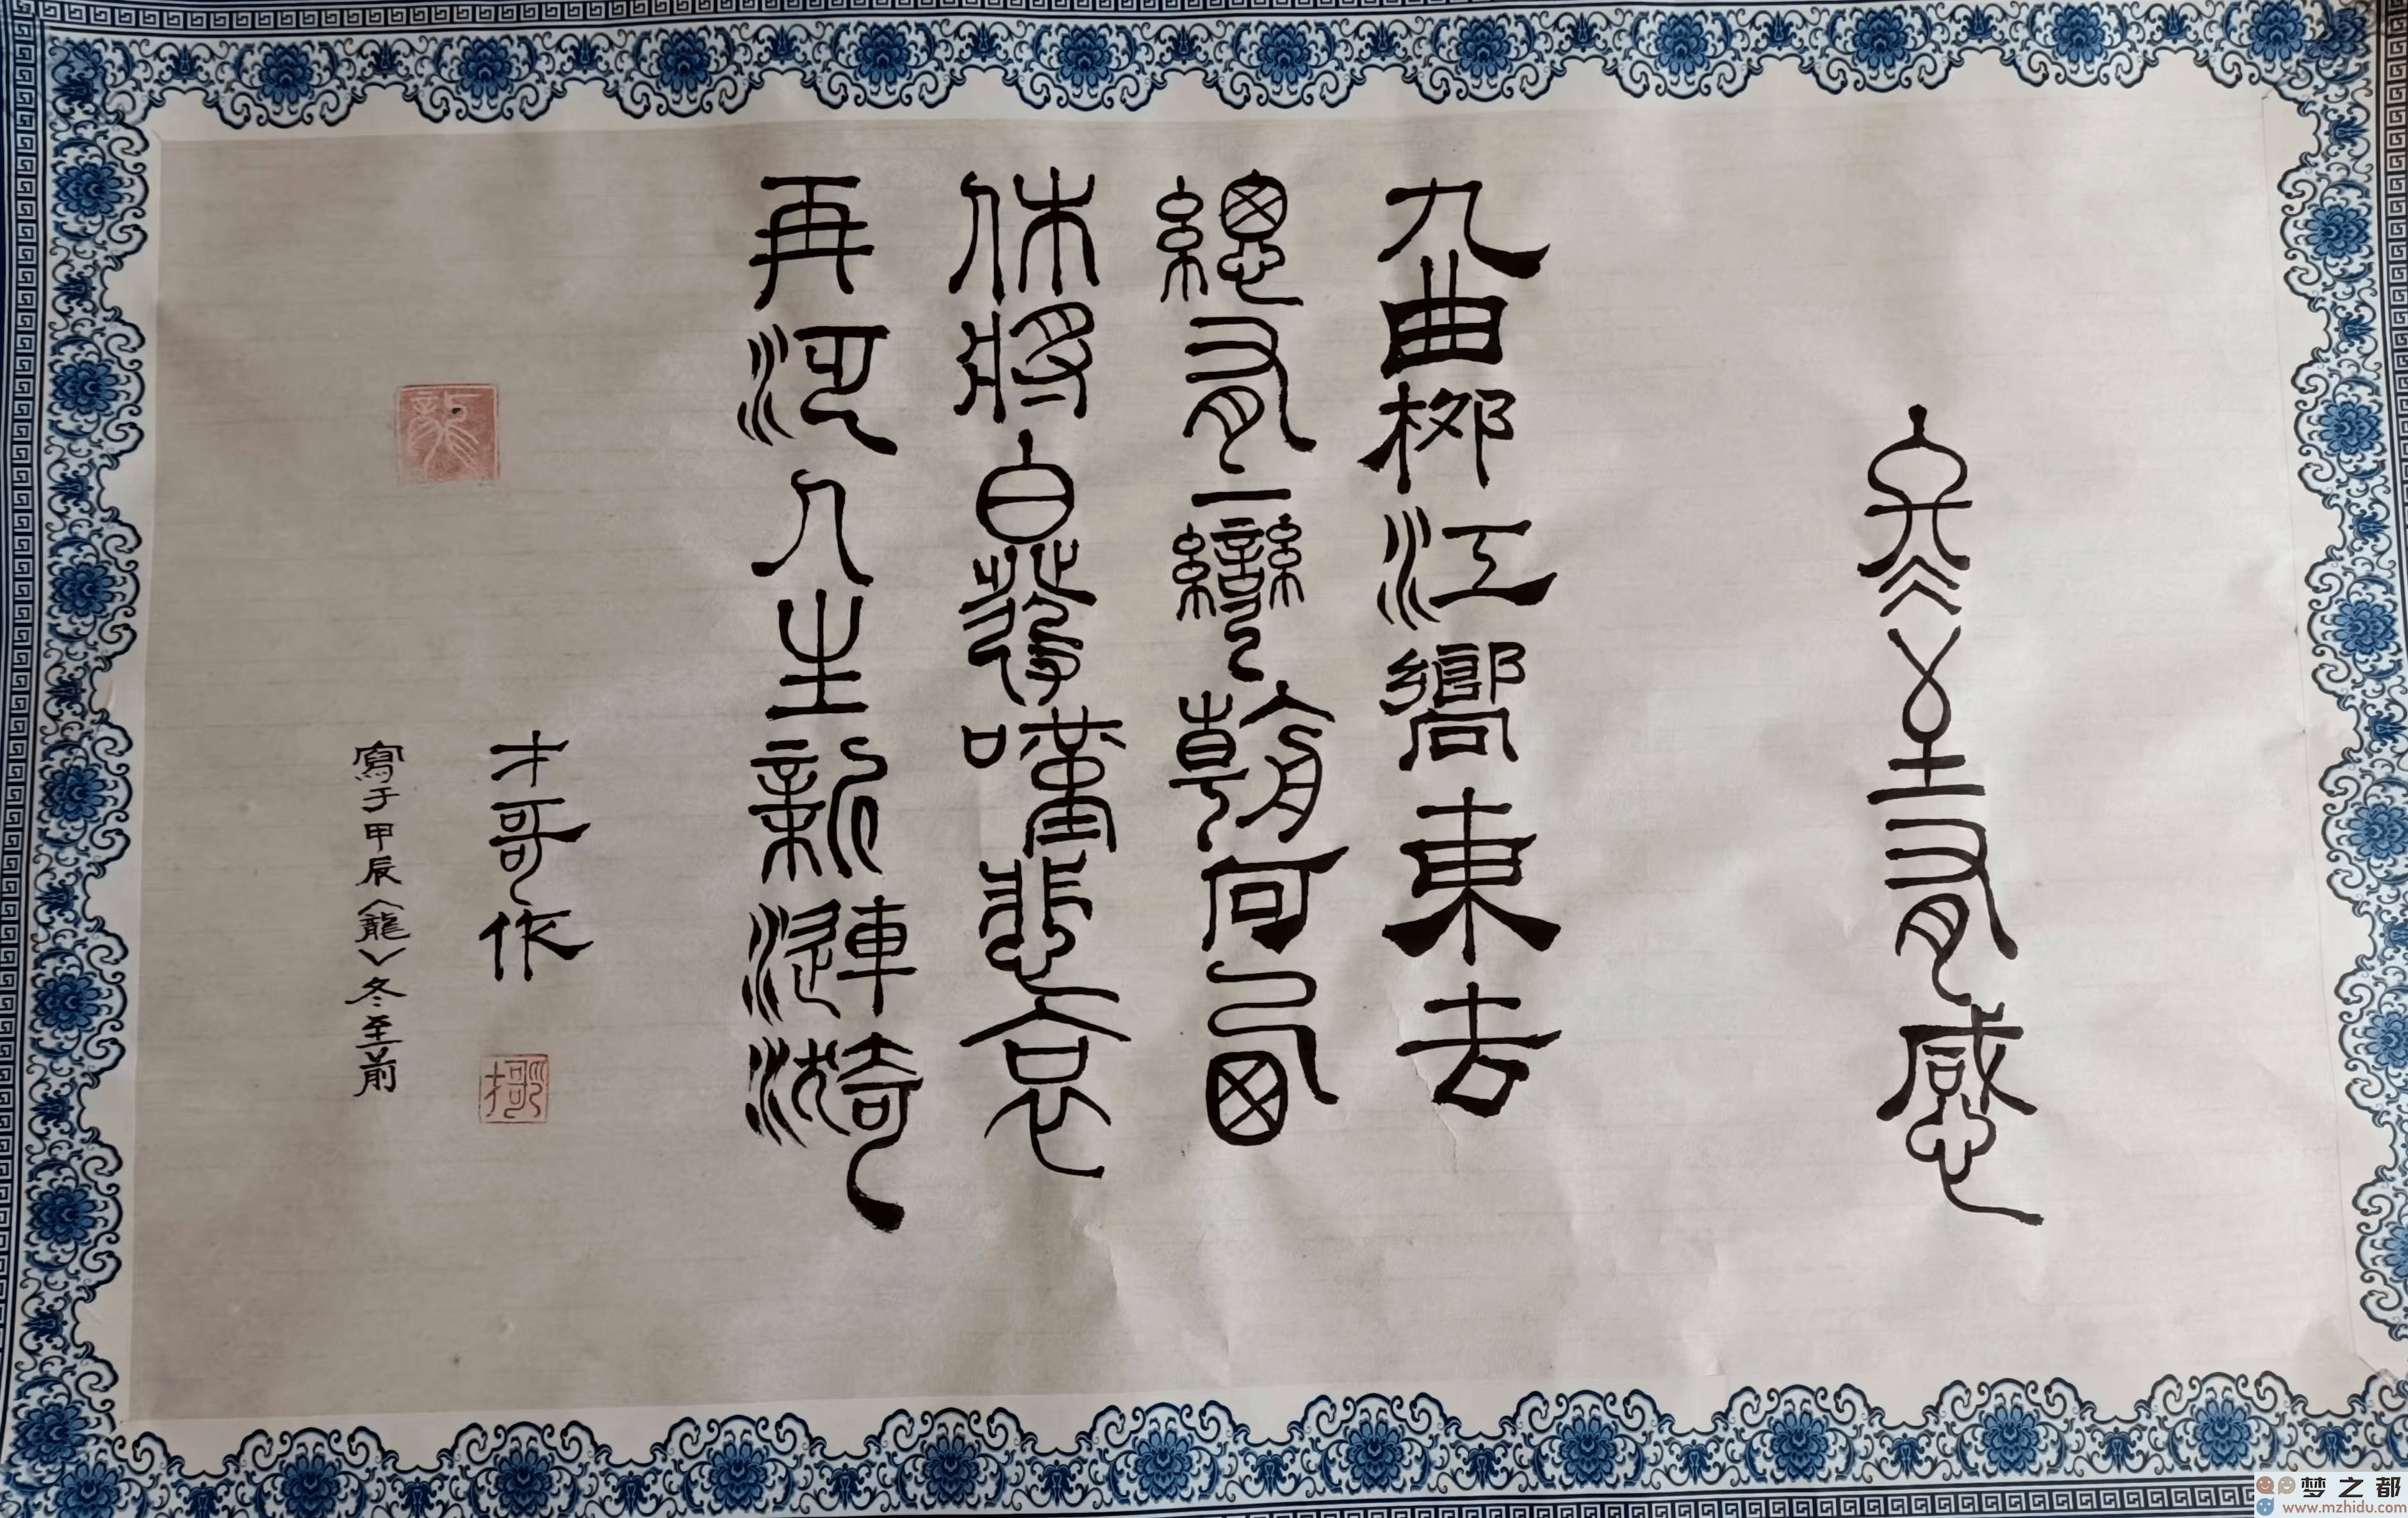 冬至有感
九曲柳江嚮東去
總有一彎朝何回
休將白髮嘆悲哀
再泛人生新漣漪
才哥作
寫于甲辰〈龍〉冬至前
梦之都
www.mzhidu.com